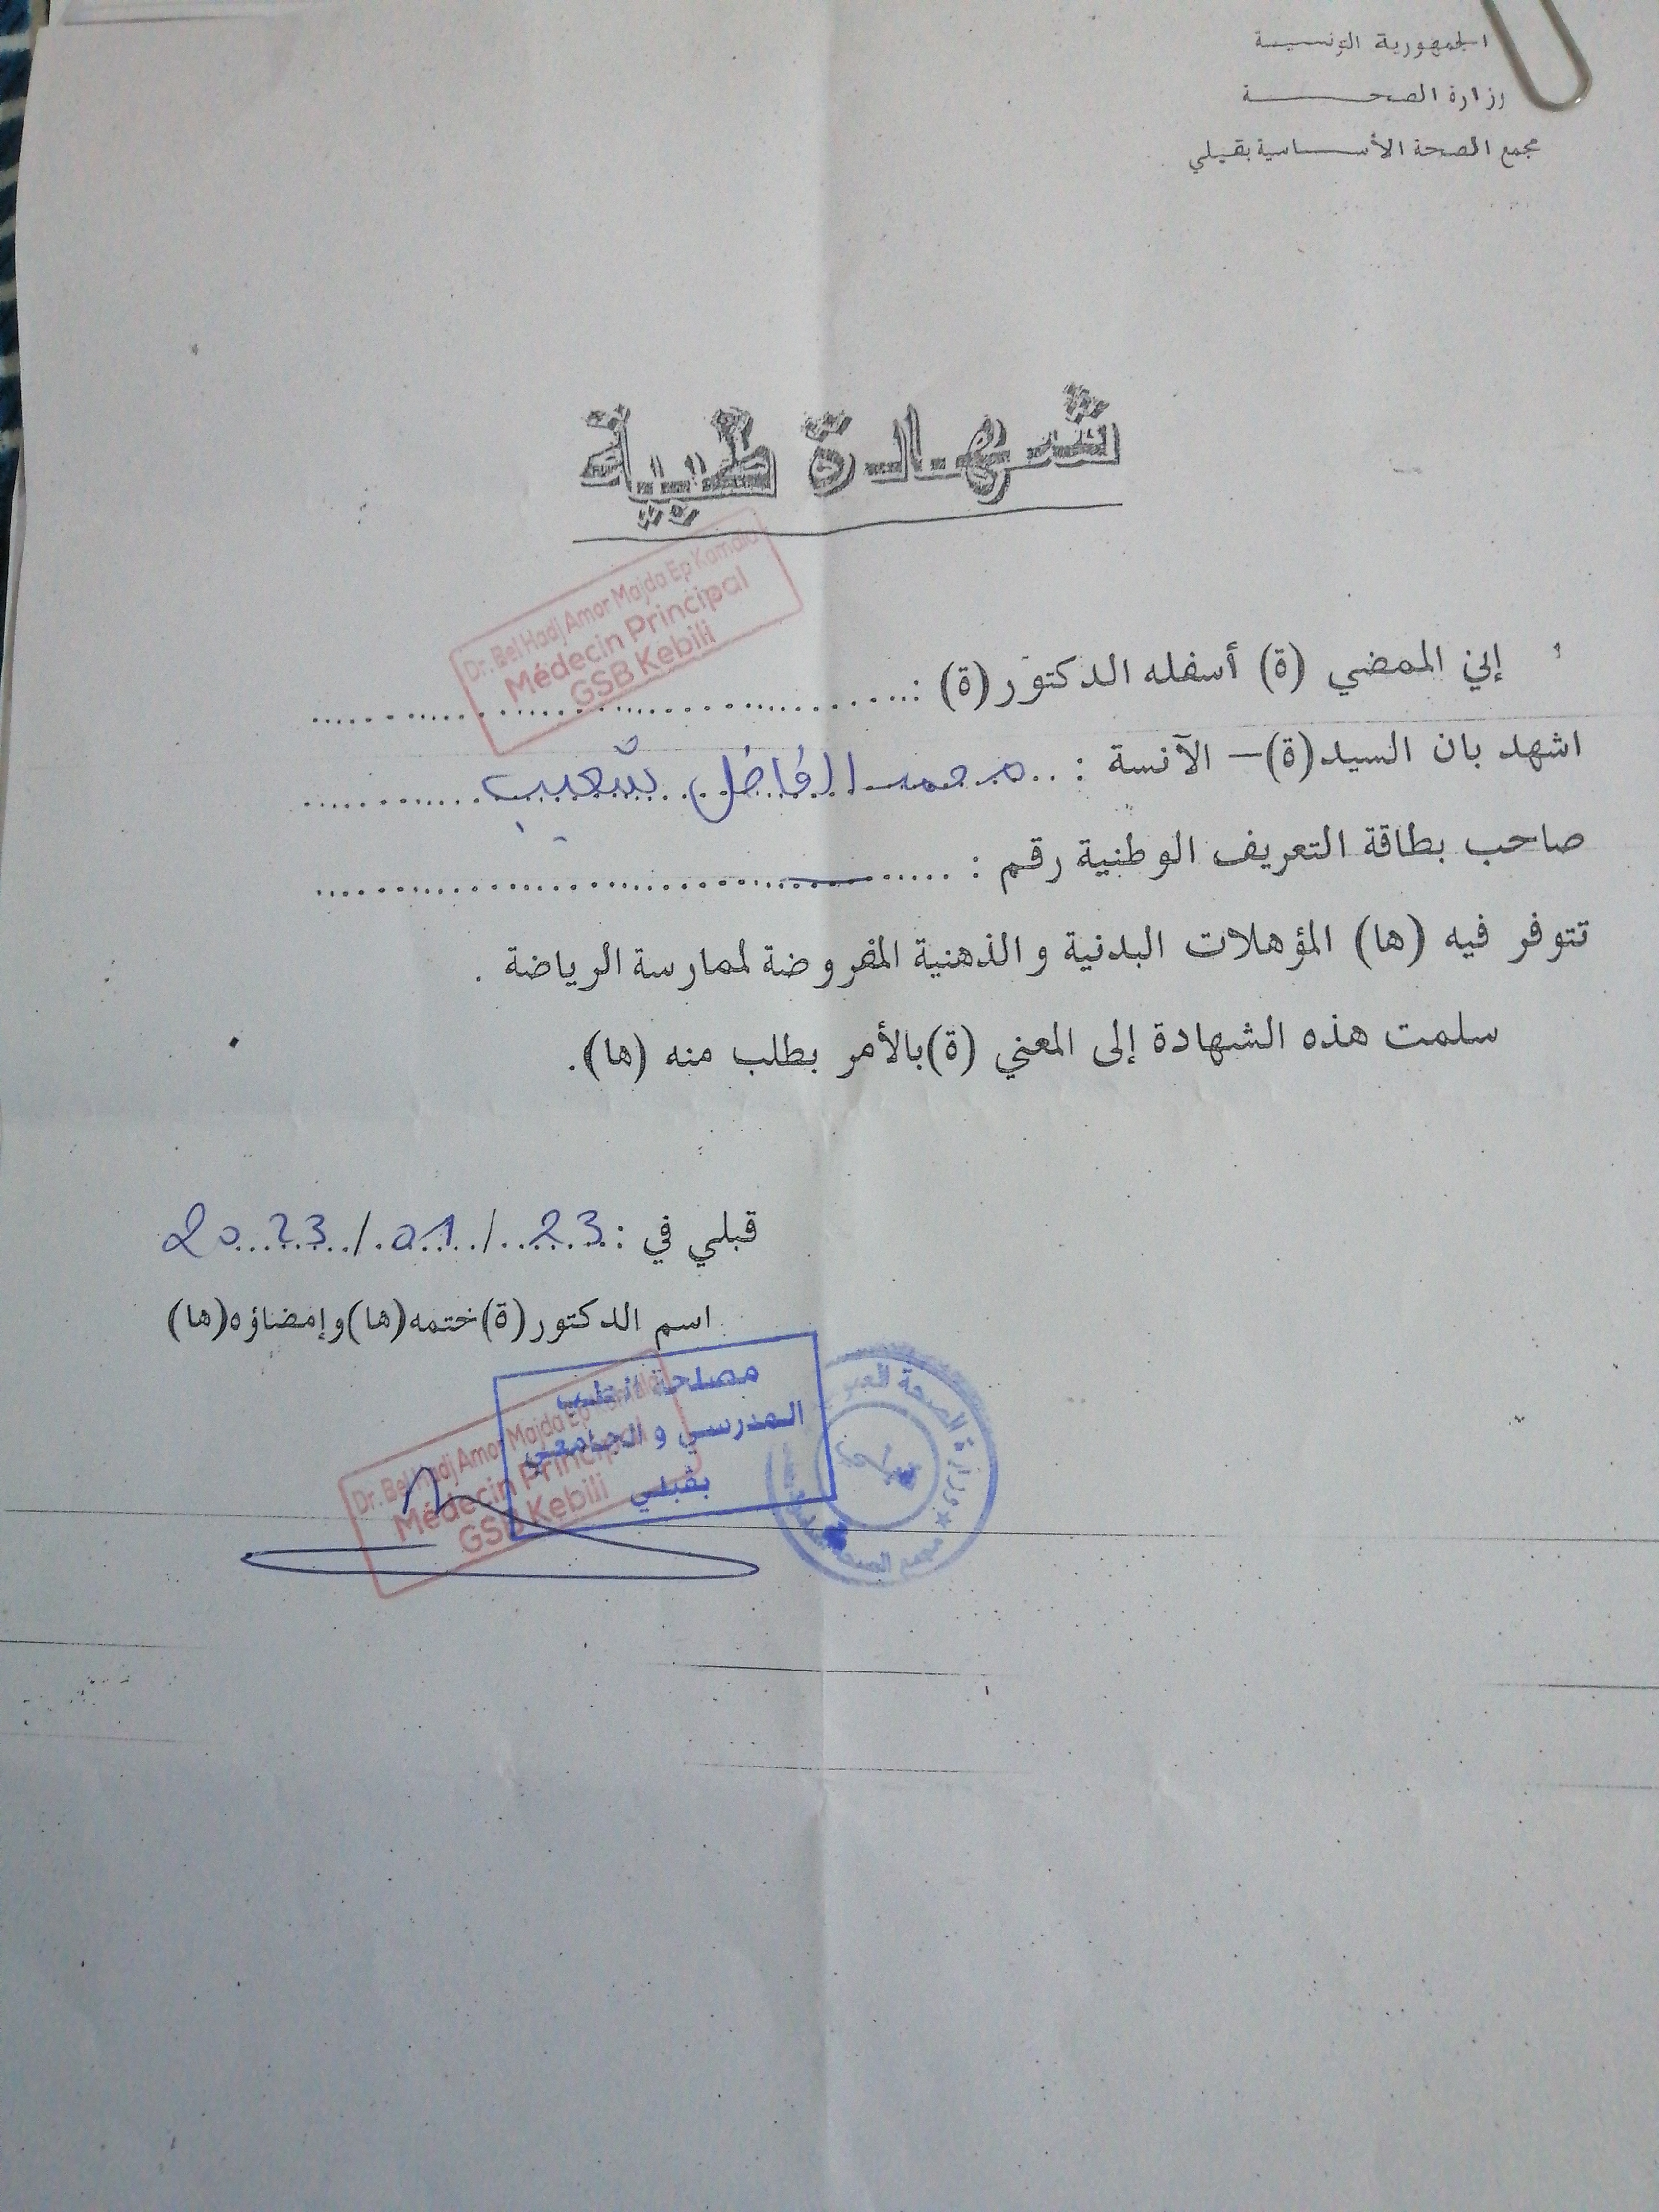 الجمهورية التونسية
وزارة الصحة
مجمع الصحة الأساسية بقبلي
شهادة طبية
Dr. Bel Hadj Amor Majda Ep Kamala
Médecin Principal
GSB Kebili
إني الممضي (ة) أسفله الدكتور (ة) :
اشهد بان السيد(ة)– الآنسة : محمد الفاضل شعيب
صاحب بطاقة التعريف الوطنية رقم : —
تتوفر فيه (ها) المؤهلات البدنية والذهنية المفروضة لممارسة الرياضة .
سلمت هذه الشهادة إلى المعني (ة)بالأمر بطلب منه (ها).
قبلي في : 23 / 01 / 2023
اسم الدكتور (ة) ختمه (ها) وإمضاؤه (ها)
مصلحة الطب
المدرسي و الجامعي
بقبلي
Dr. Bel Hadj Amor Majda Ep Kamala
Médecin Principal
GSB Kebili
وزارة الصحة